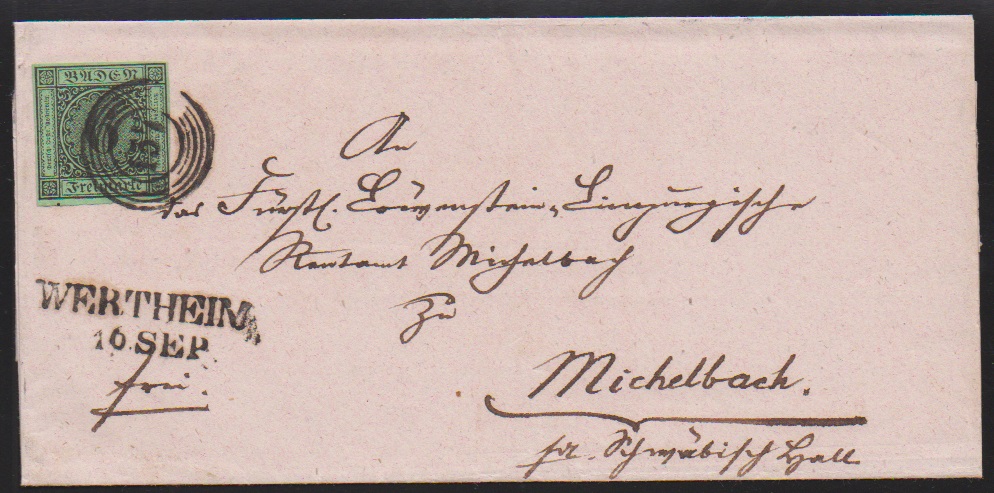 BADEN
Freimarke
157
An
das Fürstl. Löwenstein-Limpurgische
Rentamt Michelbach
zu
Michelbach.
pr. Schwäbisch Hall
WERTHEIM
16. SEP
frei.